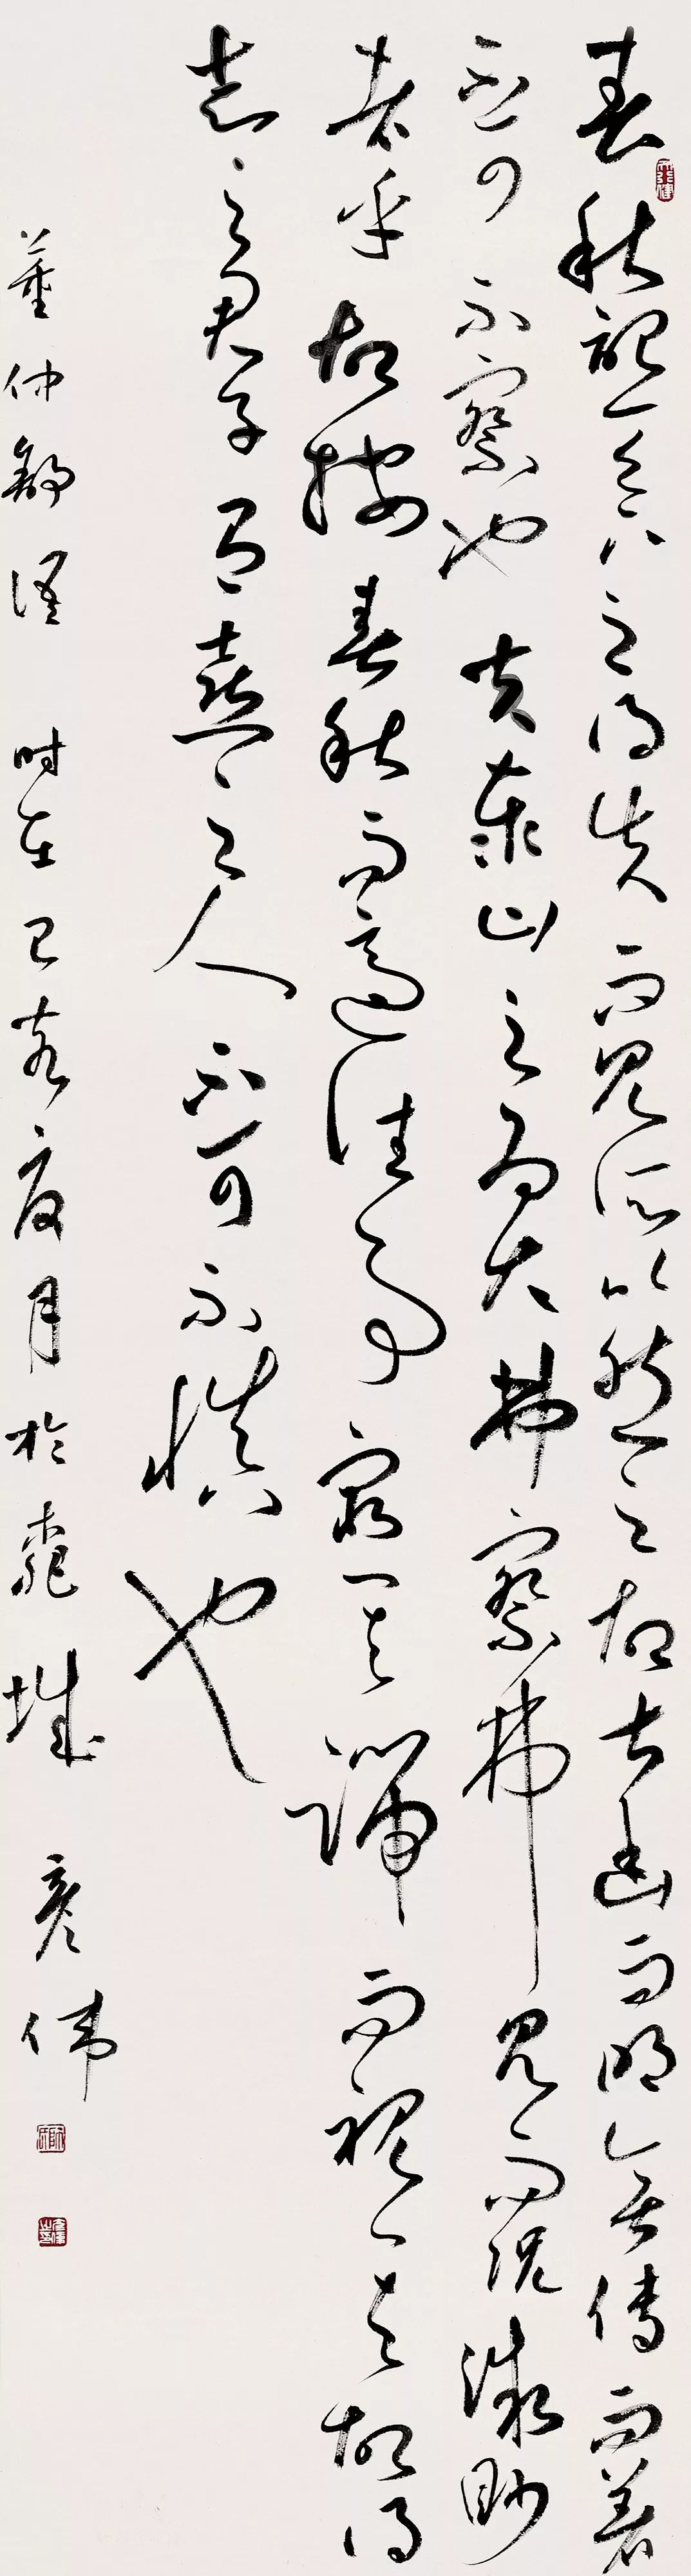 春秋記天下之得失而見所以然之故甚幽而明無傳而著
不可不察也夫泰山之為大弗察弗見而況微眇
者乎故按春秋而適往事窮其端而視其故得
志之君子有喜之人不可不慎也
董仲舒語 时在己亥夏月於龍城 彦伟